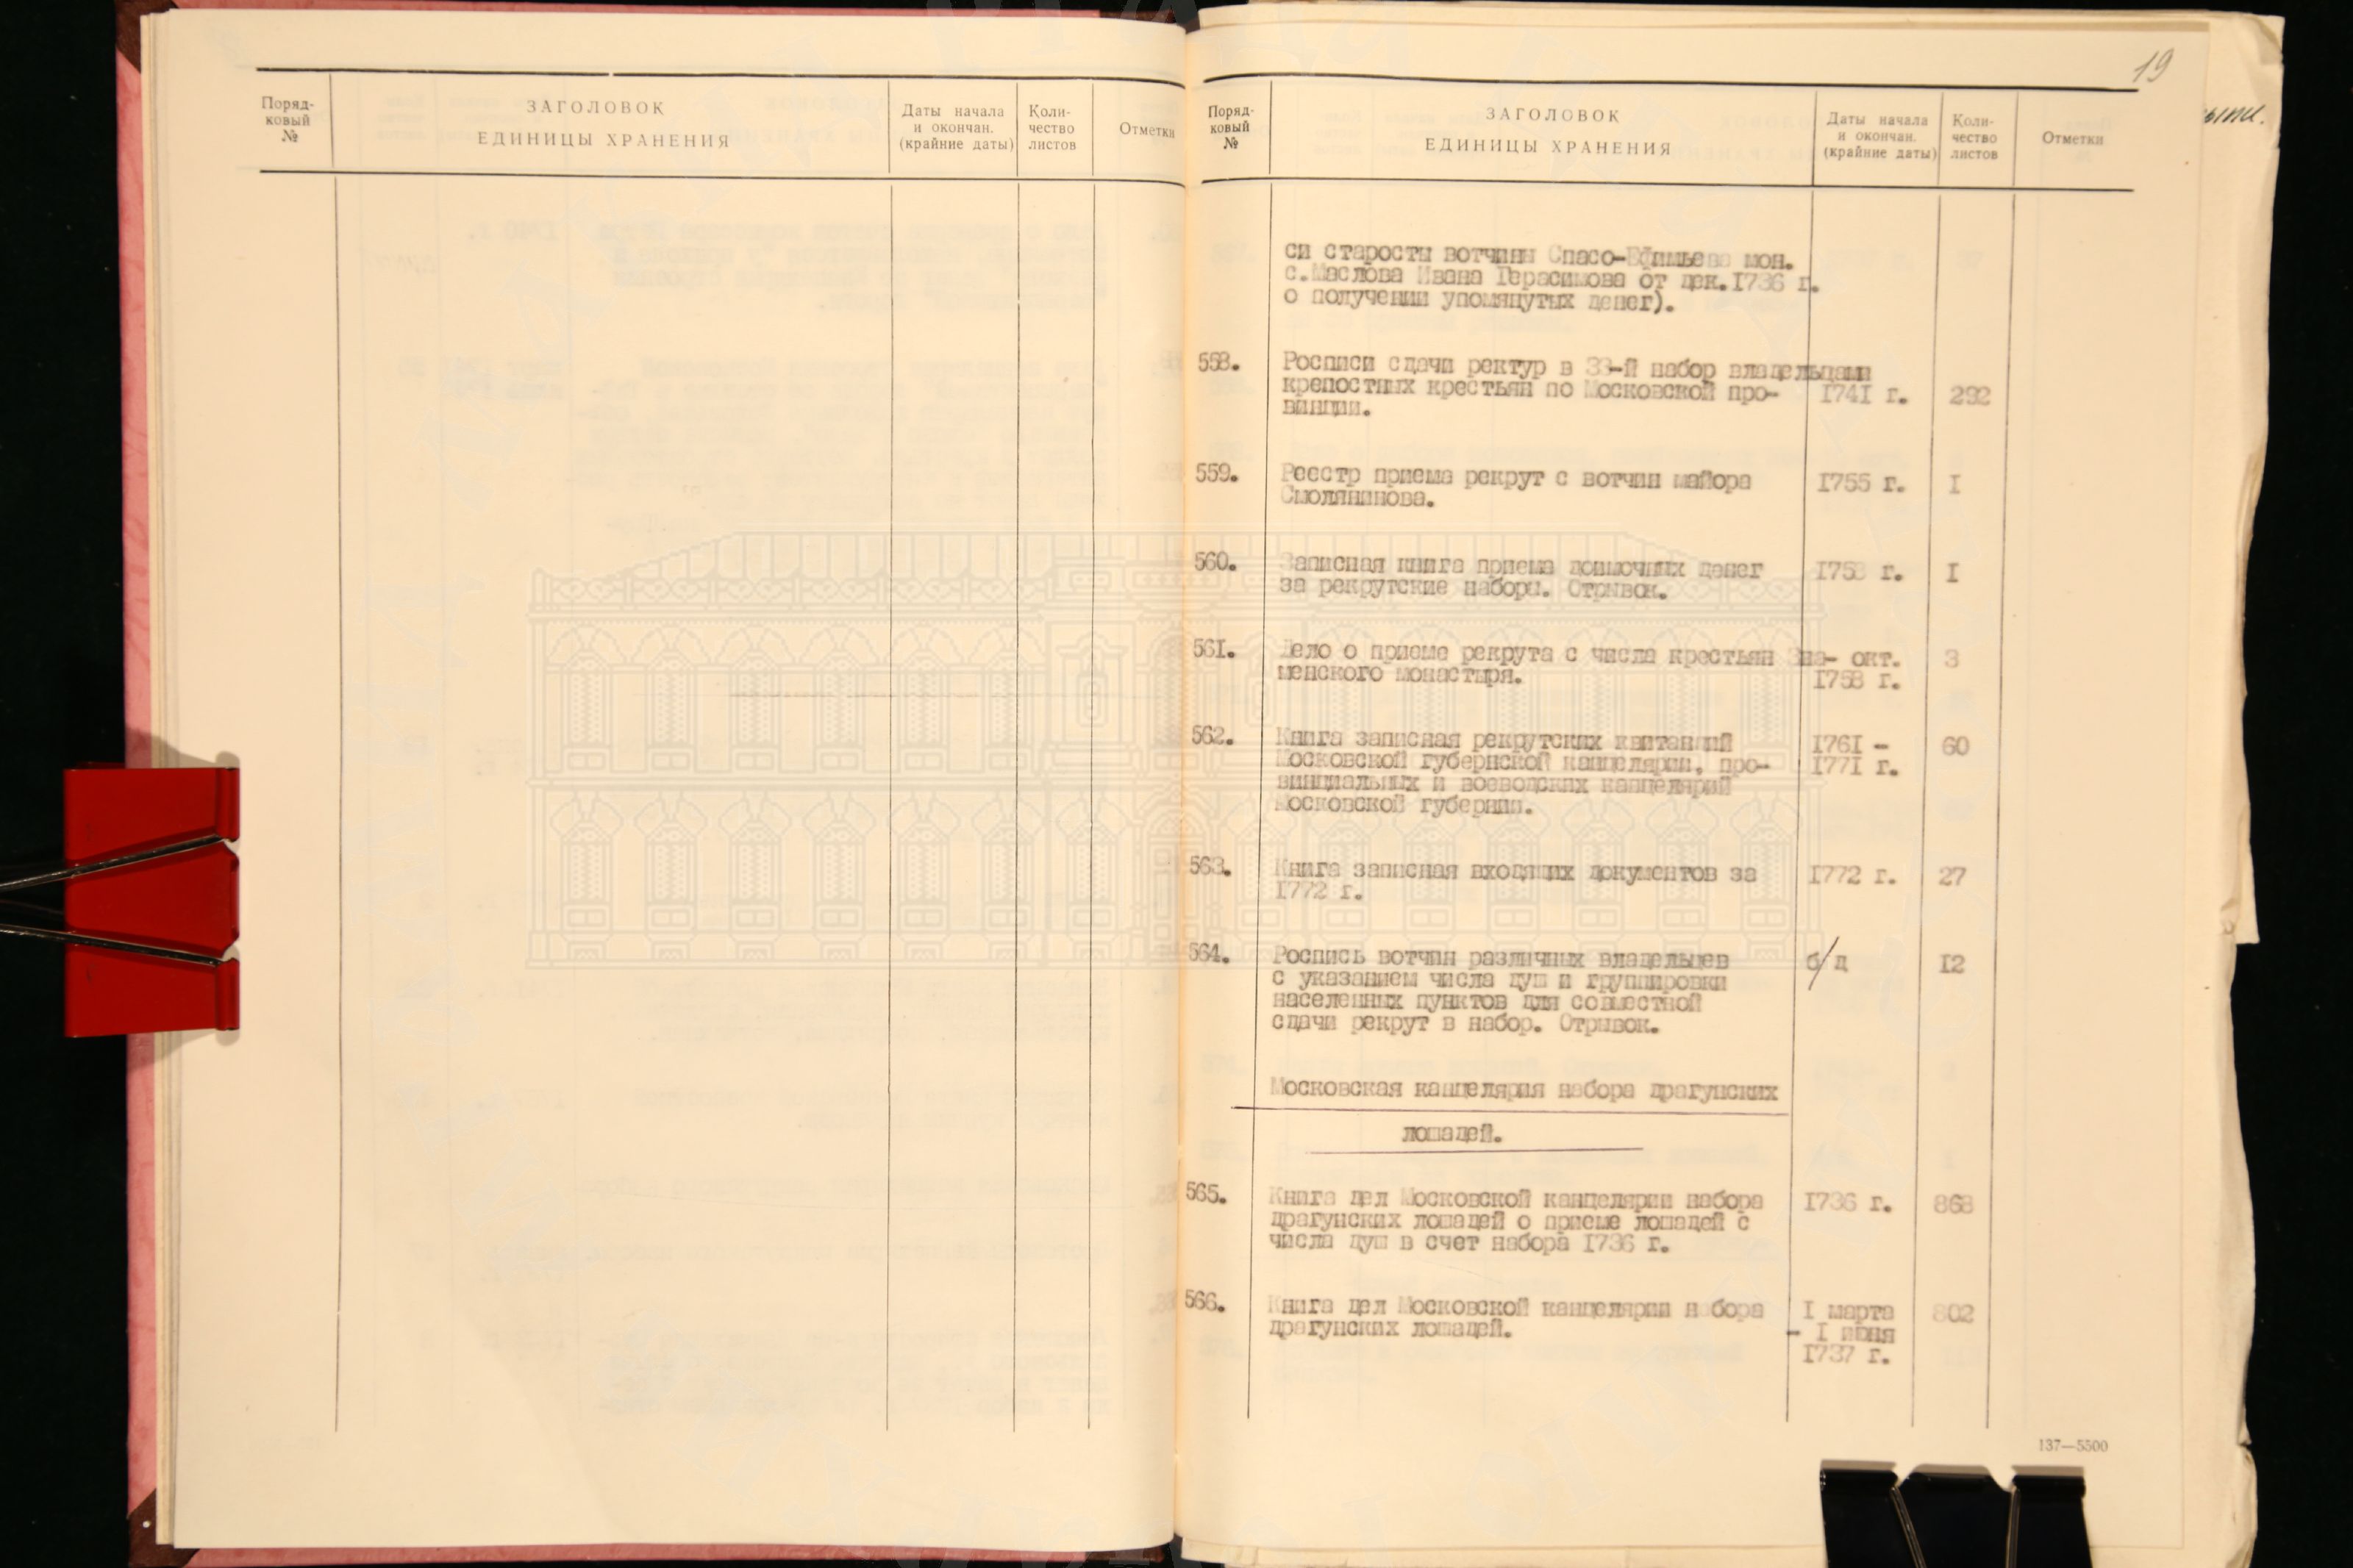 Поряд-
ковый
№
ЗАГОЛОВОК
ЕДИНИЦЫ ХРАНЕНИЯ
Даты начала
и окончан.
(крайние даты)
Коли-
чество
листов
Отметки
19
Поряд-
ковый
№
ЗАГОЛОВОК
ЕДИНИЦЫ ХРАНЕНИЯ
Даты начала
и окончан.
(крайние даты)
Коли-
чество
листов
Отметки
си старосты вотчины Спасо-Ефимьева мон.
с.Маслова Ивана Герасимова от дек.1736 г.
о получении упомянутых денег).
558. Росписи сдачи ректур в 33-й набор владельцами
крепостных крестьян по Московской про- 1741 г. 292
винции.
559. Реестр приема рекрут с вотчин майора 1755 г. I
Смолянинова.
560. Записная книга приема доимочных денег 1758 г. I
за рекрутские наборы. Отрывок.
561. Дело о приеме рекрута с числа крестьян Зна- окт. 3
менского монастыря. 1758 г.
562. Книга записная рекрутских квитанций 1761 - 60
Московской губернской канцелярии, про- 1771 г.
винциальных и воеводских канцелярий
Московской губернии.
563. Книга записная входящих документов за 1772 г. 27
1772 г.
564. Роспись вотчин различных владельцев б/д 12
с указанием числа душ и группировки
населенных пунктов для совместной
сдачи рекрут в набор. Отрывок.
Московская канцелярия набора драгунских
лошадей.
565. Книга дел Московской канцелярии набора 1736 г. 868
драгунских лошадей о приеме лошадей с
числа душ в счет набора 1736 г.
566. Книга дел Московской канцелярии набора I марта 802
драгунских лошадей. - I июня
1737 г.
137—5500